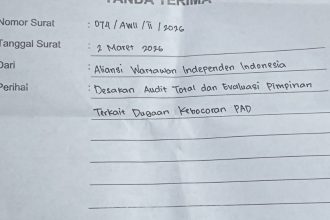 TANDA TERIMA
Nomor Surat : 074 / AWII / III / 2026
Tanggal Surat : 2 Maret 2026
Dari : Aliansi Wartawan Independen Indonesia
Perihal : Desakan Audit Total dan Evaluasi Pimpinan
Terkait Dugaan Kebocoran PAD